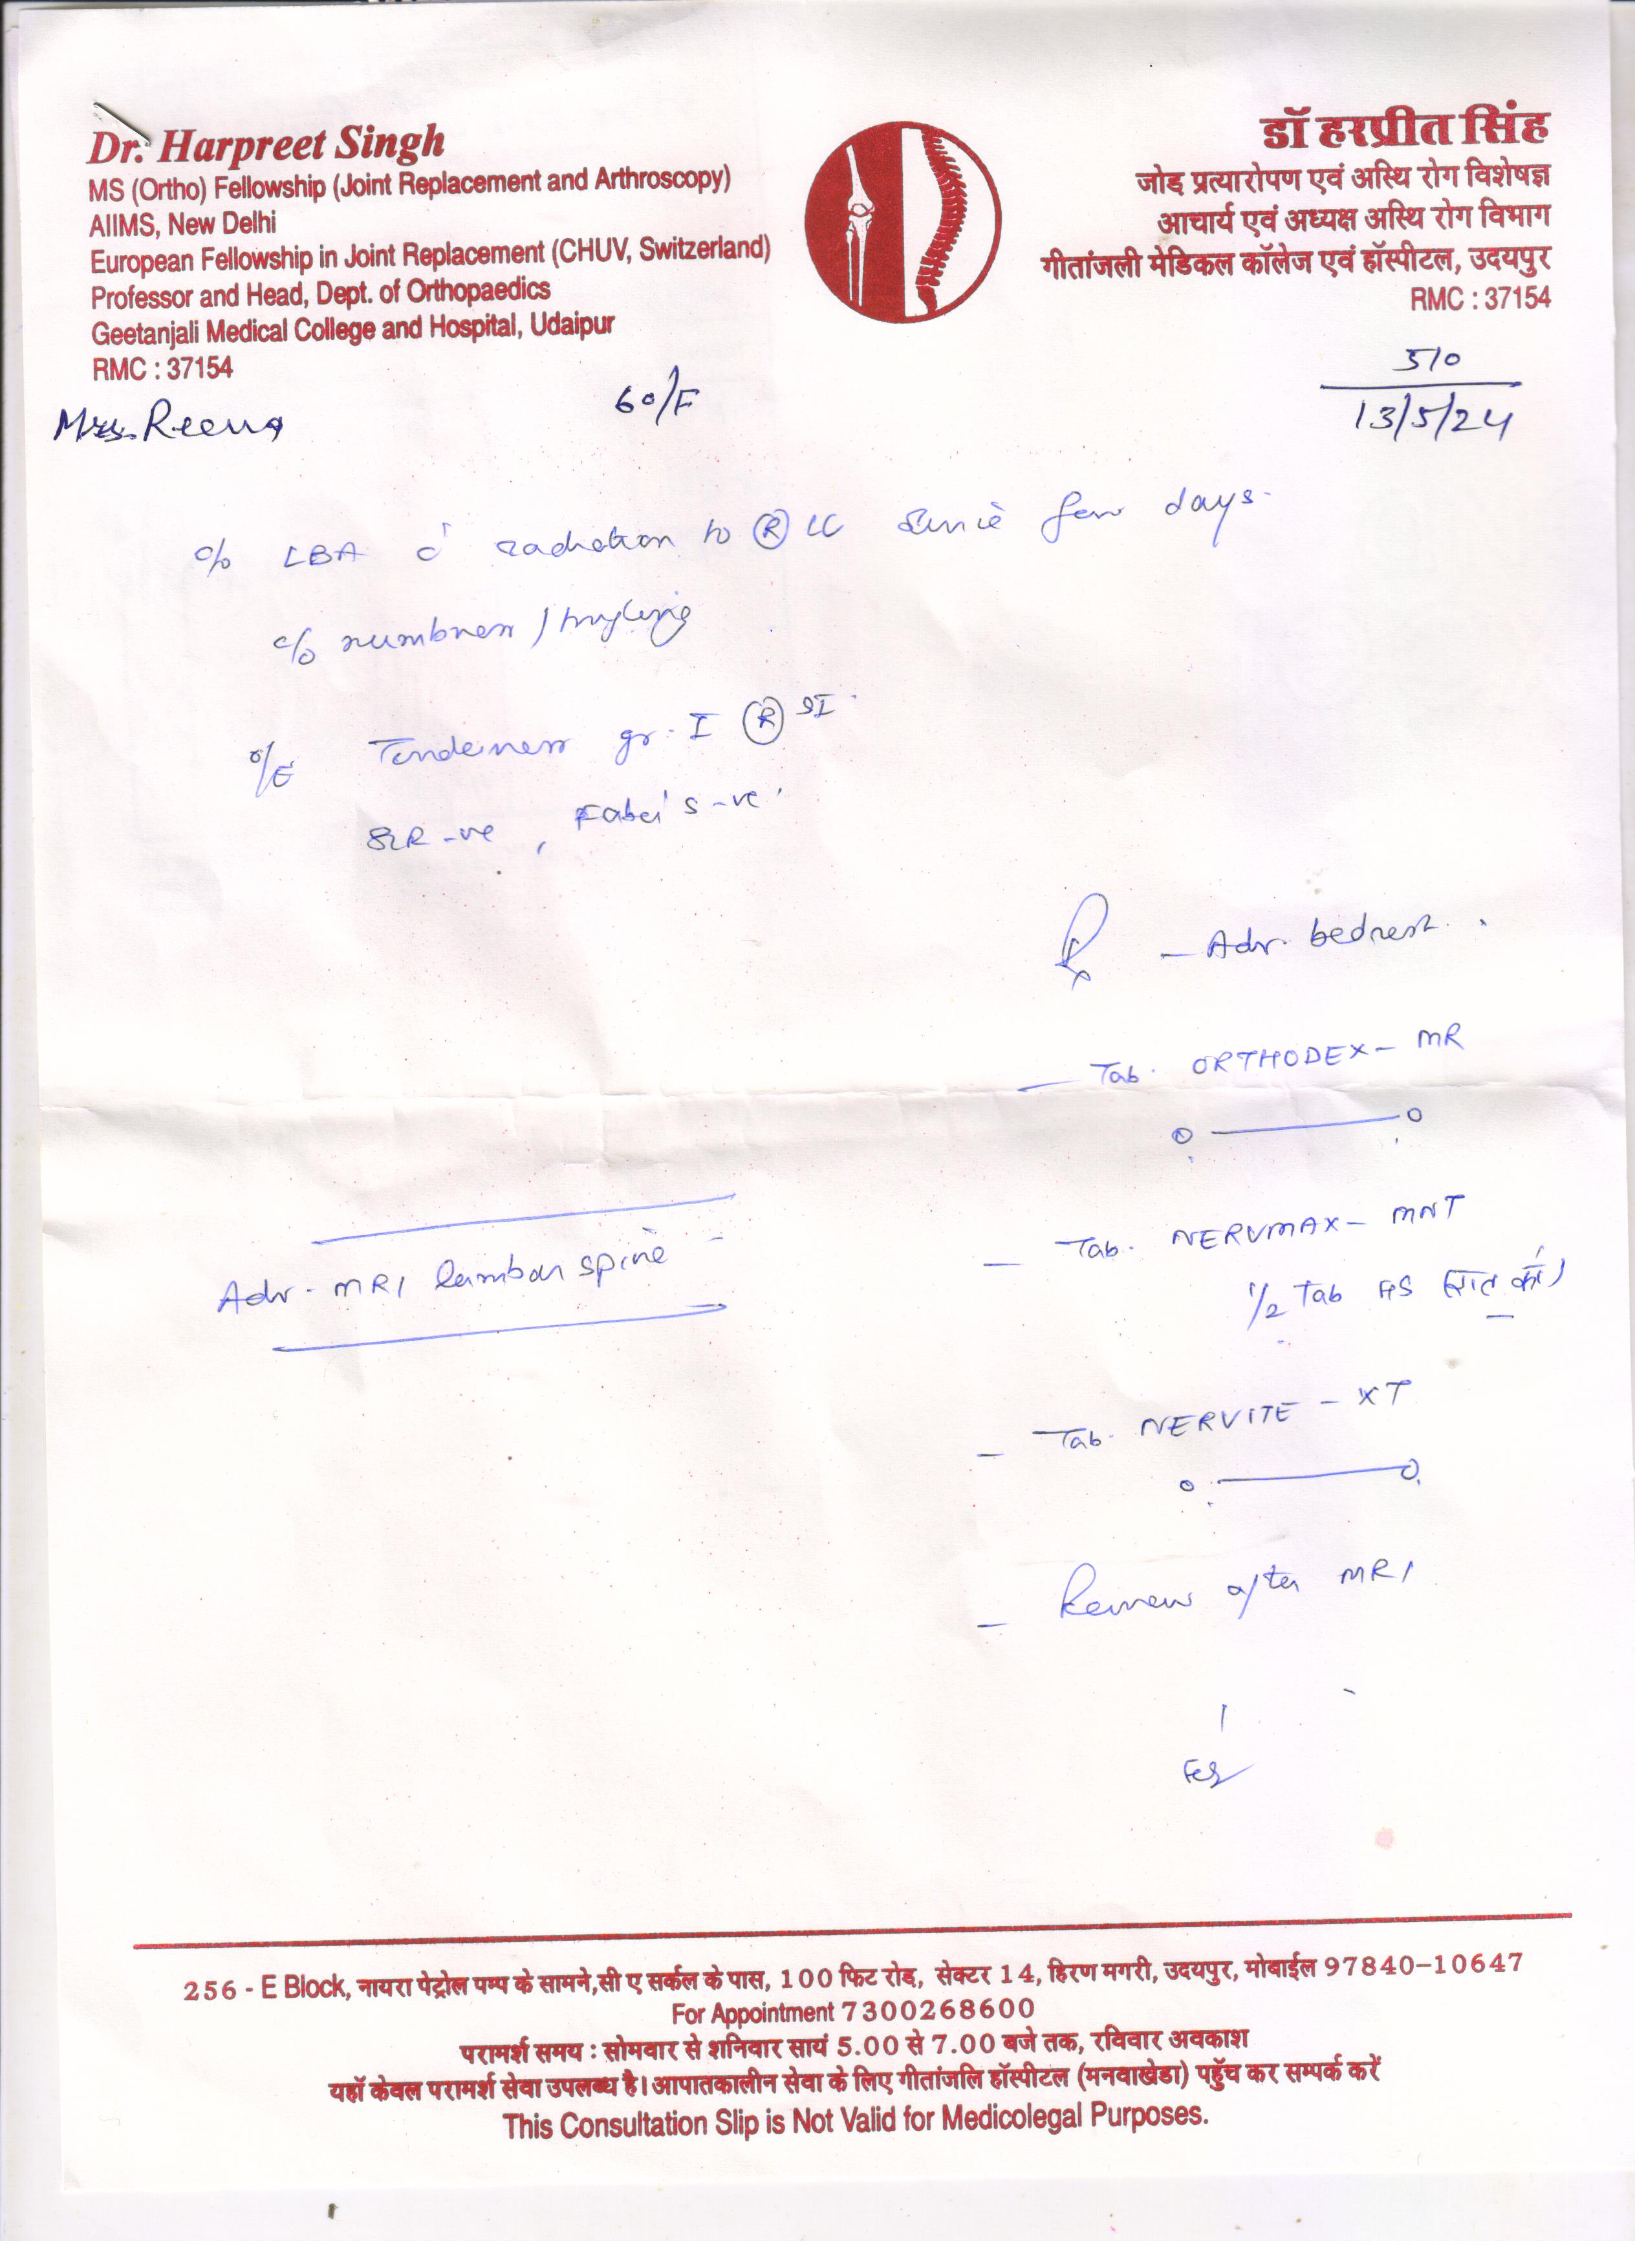 Dr. Harpreet Singh
MS (Ortho) Fellowship (Joint Replacement and Arthroscopy)
AIIMS, New Delhi
European Fellowship in Joint Replacement (CHUV, Switzerland)
Professor and Head, Dept. of Orthopaedics
Geetanjali Medical College and Hospital, Udaipur
RMC : 37154
डॉ हरप्रीत सिंह
जोड प्रत्यारोपण एवं अस्थि रोग विशेषज्ञ
आचार्य एवं अध्यक्ष अस्थि रोग विभाग
गीतांजली मेडिकल कॉलेज एवं हॉस्पीटल, उदयपुर
RMC : 37154
510
Mrs. Reena 60/F 13/5/24
c/o LBA c̄ radiation to Ⓡ LL since few days.
c/o numbness / tingling
o/E Tenderness gr. I Ⓡ SI
SLR -ve, Faber's -ve
Rx - Adv. bedrest.
- Tab. ORTHODEX - MR
o — o
- Tab. NERVMAX - MNT
1/2 Tab HS (रात को)
Adv - MRI lumbar spine
- Tab. NERVITE - XT
o — o
- Review after MRI
256 - E Block, नायरा पेट्रोल पम्प के सामने,सी ए सर्कल के पास, 100 फिट रोड, सेक्टर 14, हिरण मगरी, उदयपुर, मोबाईल 97840-10647
For Appointment 7300268600
परामर्श समय : सोमवार से शनिवार सायं 5.00 से 7.00 बजे तक, रविवार अवकाश
यहाँ केवल परामर्श सेवा उपलब्ध है। आपातकालीन सेवा के लिए गीतांजलि हॉस्पीटल (मनवाखेडा) पहुँच कर सम्पर्क करें
This Consultation Slip is Not Valid for Medicolegal Purposes.